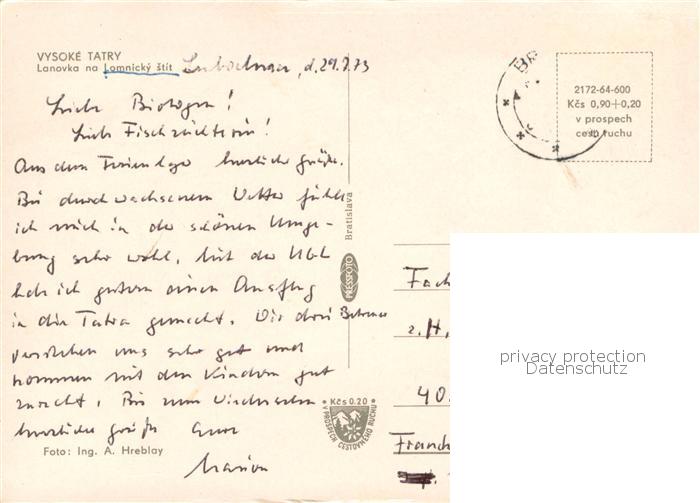 VYSOKÉ TATRY
Lanovka na Lomnický štít
d. 29.7.73
Liebe Biologen!
Liebe Fischzüchterin!
Aus dem Ferienlager herzliche Grüße.
Bei durchwachsenem Wetter fühle
ich mich in der schönen Umge-
bung sehr wohl. Mit der
habe ich gestern einen Ausflug
in die Tatra gemacht. Wir drei Betreuer
verstehen uns sehr gut und
kommen mit den Kindern gut
zurecht. Bis zum Wiedersehen
herzliche Grüße Eure
Marion
Foto: Ing. A. Hreblay
Bratislava
PRESSFOTO
Kčs 0.20
V PROSPECH CESTOVNÉHO RUCHU
2172-64-600
Kčs 0,90+0,20
v prospech
cest. ruchu
Fach
z. H.
40
Franck
privacy protection
Datenschutz